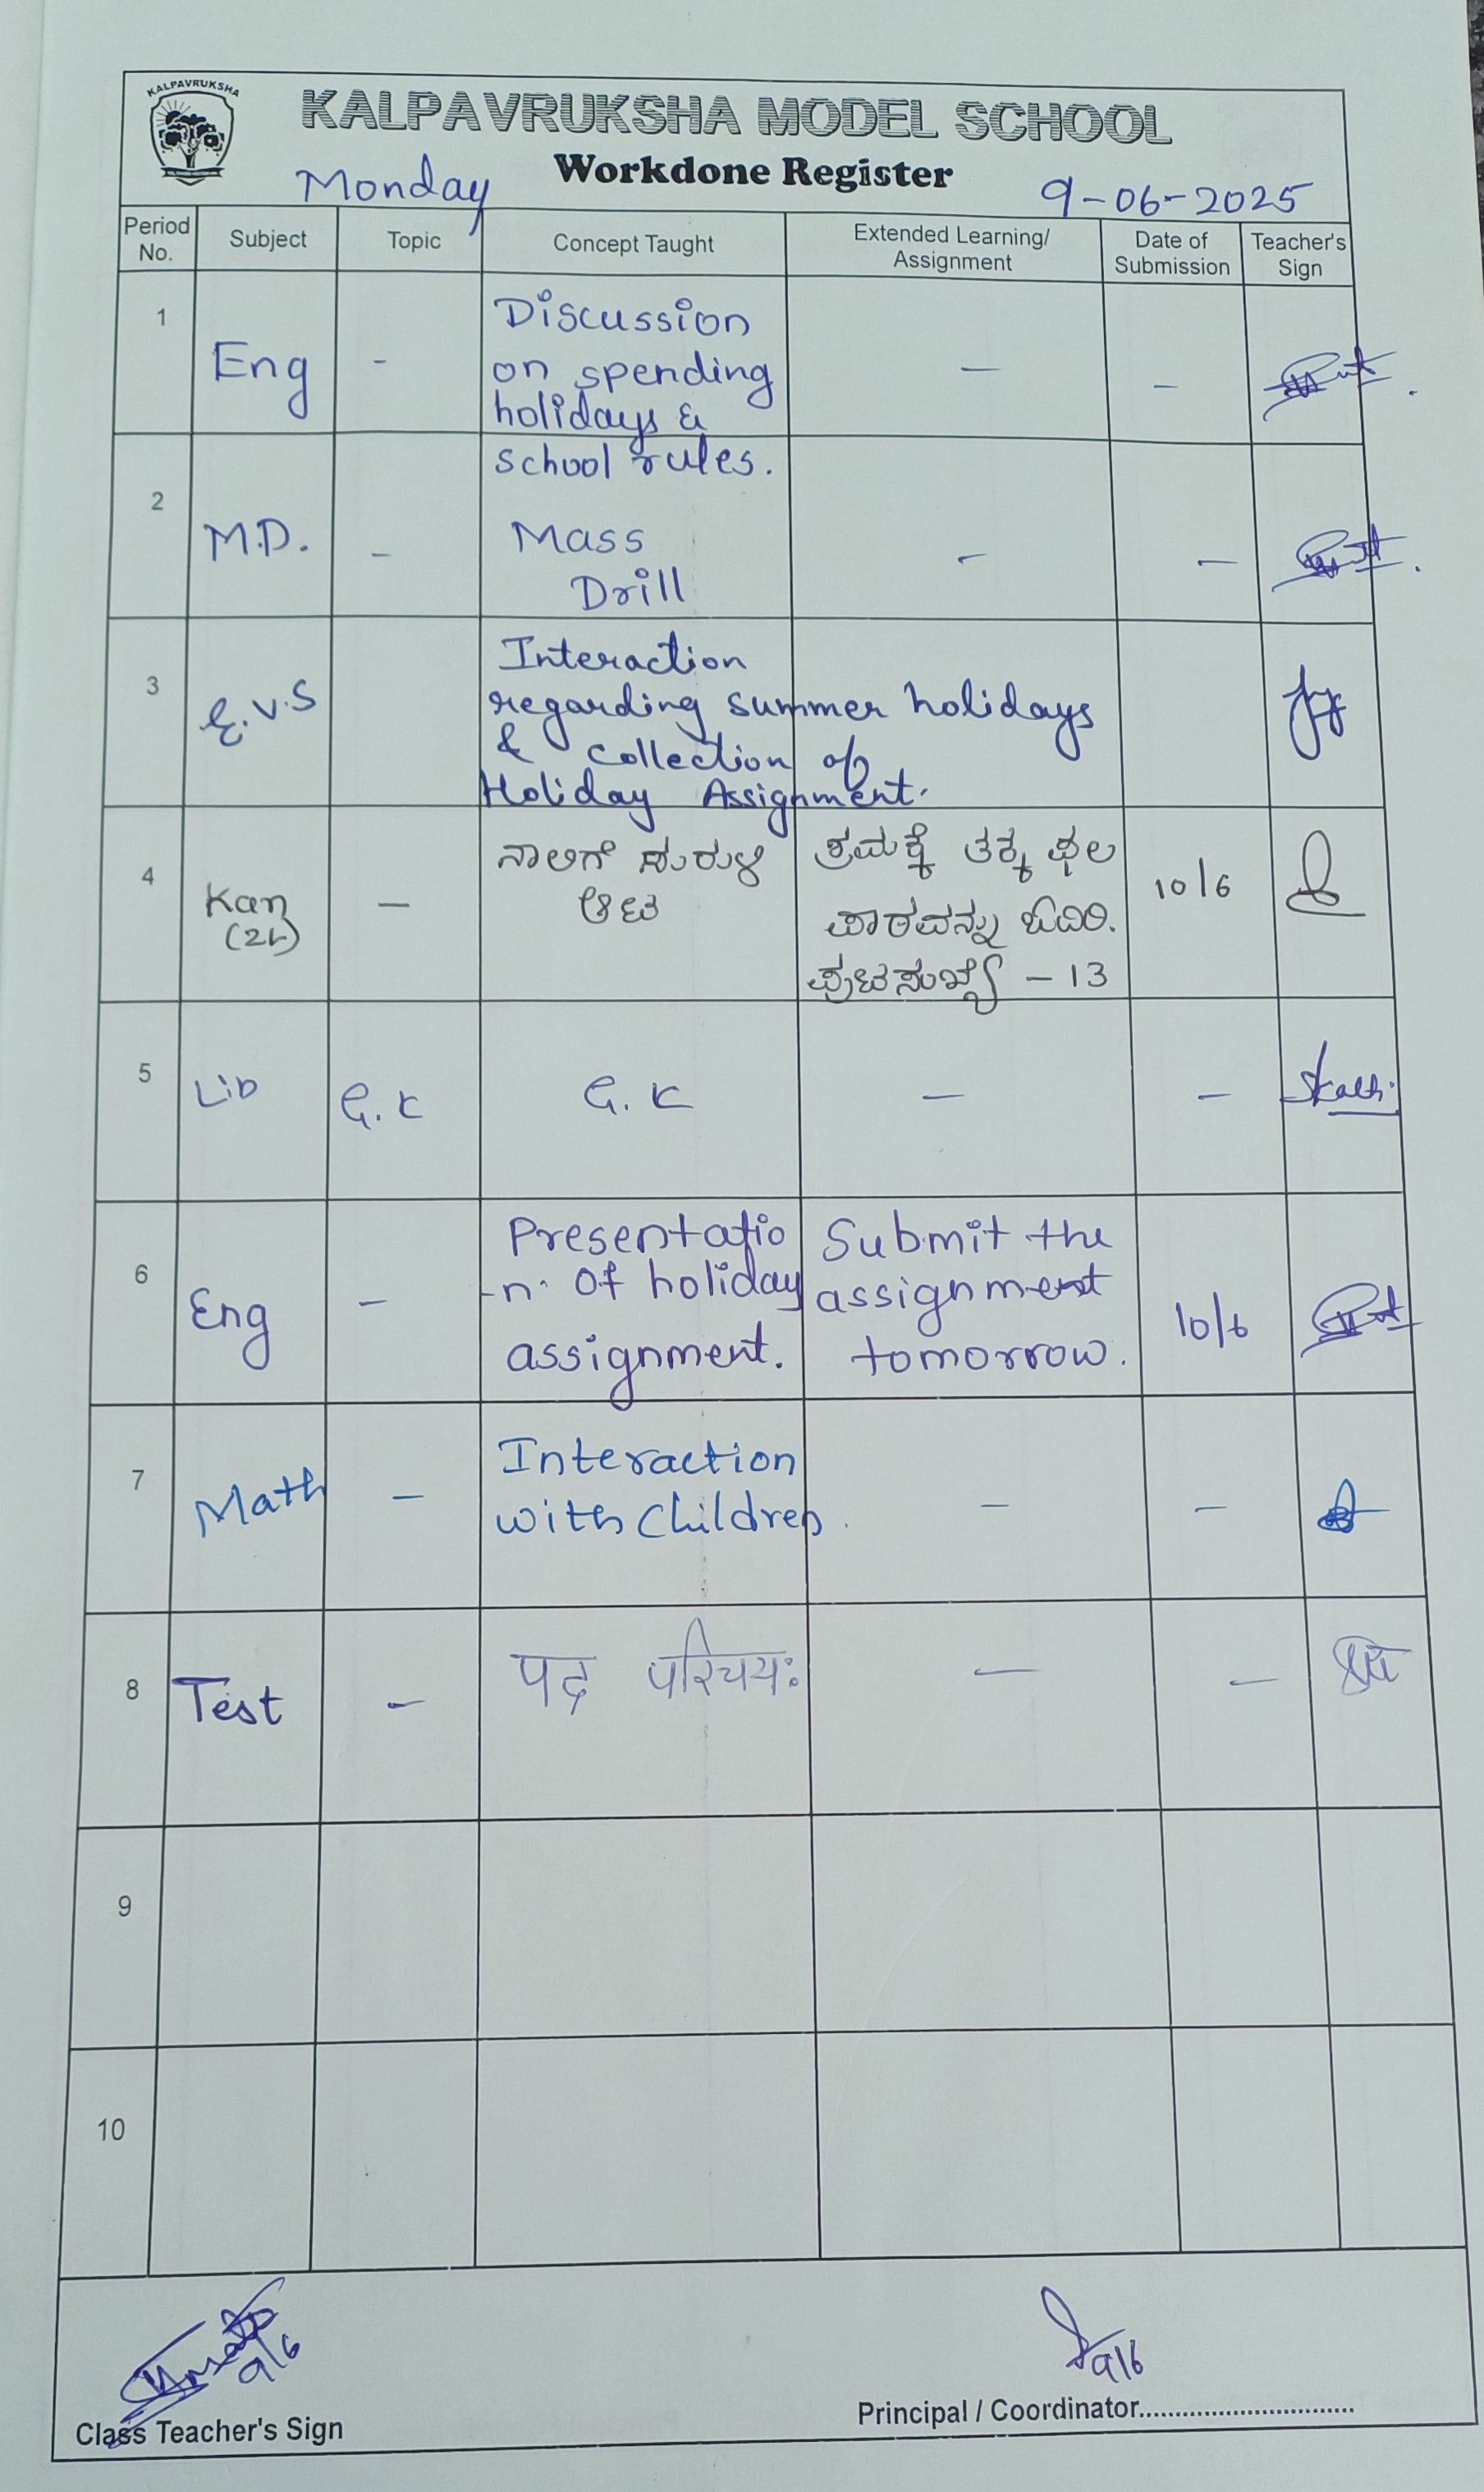 KALPAVRUKSHA
KALPAVRUKSHA MODEL SCHOOL
Workdone Register
Monday
9-06-2025
Period No.
Subject
Topic
Concept Taught
Extended Learning/
Assignment
Date of
Submission
Teacher's
Sign
1
Eng
-
Discussion
on spending
holidays &
school rules.
-
-
2
M.D.
-
Mass
Drill
-
-
3
E.V.S
Interaction
regarding summer holidays
& Collection of
Holiday Assignment.
4
Kan
(2L)
-
ನಾಲಿಗೆ ಸುರುಳಿ
ಆಟ
ಶ್ರಮಕ್ಕೆ ತಕ್ಕ ಫಲ
ಪಾಠವನ್ನು ಓದಿರಿ.
ಪುಟಸಂಖ್ಯೆ - 13
10/6
5
Lib
G.K
G.K
-
-
6
Eng
-
Presentatio
-n. Of holiday
assignment.
Submit the
assignment
tomorrow.
10/6
7
Math
-
Interaction
with Children.
-
-
8
Test
-
पद परिचयः
-
-
9
10
9/6
Class Teacher's Sign
9/6
Principal / Coordinator..............................